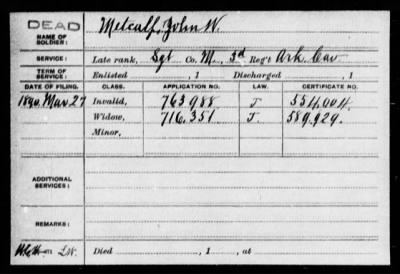 DEAD
NAME OF SOLDIER: Metcalf, John W.
SERVICE: Late rank, Sgt Co. M, 3d Reg't Ark. Cav
TERM OF SERVICE: Enlisted , 1 Discharged , 1
DATE OF FILING. CLASS. APPLICATION NO. LAW. CERTIFICATE NO.
1890. Mar 27 Invalid, 763988 J 554004.
Widow, 716.351 J. 589.929.
Minor,
ADDITIONAL SERVICES:
REMARKS:
Died , 1 , at